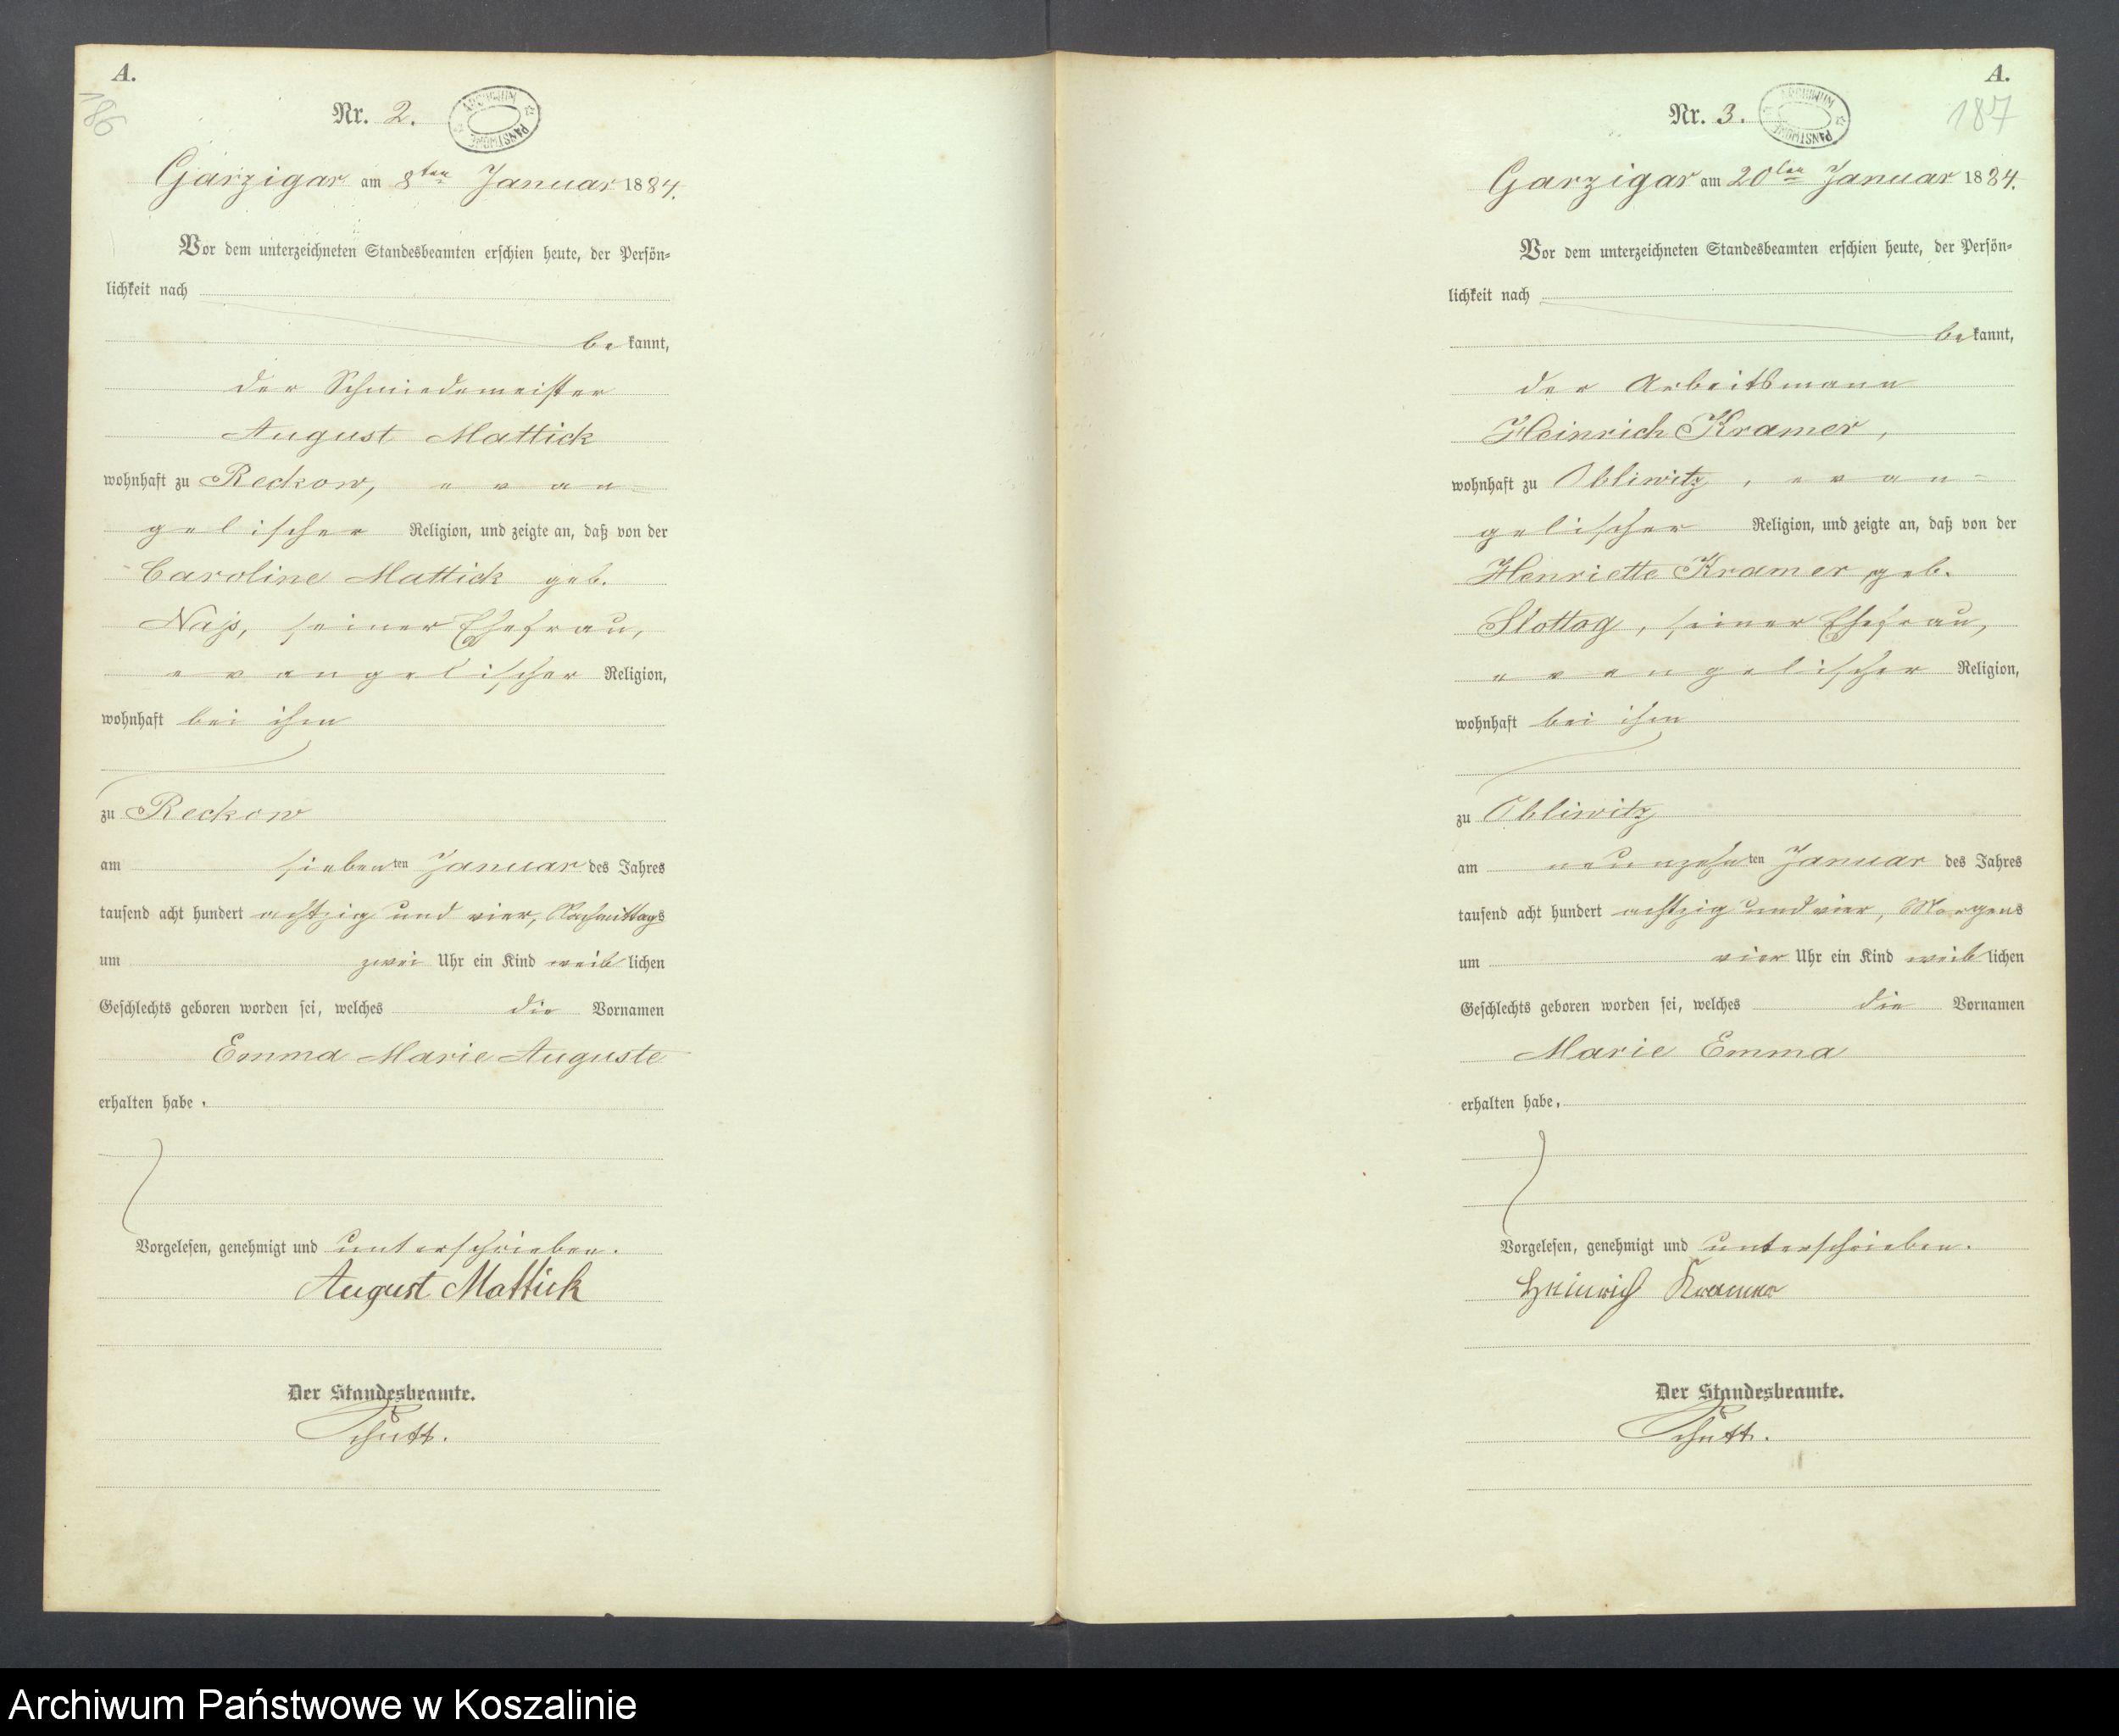 A.
186
Nr. 2.
ARCHIWUM PAŃSTWOWE
Garzigar am 8ten Januar 1884.
Vor dem unterzeichneten Standesbeamten erschien heute, der Persön-
lichkeit nach
bekannt,
der Schmiedemeister
August Mattick
wohnhaft zu Reckow, evan-
gelischer Religion, und zeigte an, daß von der
Caroline Mattick geb.
seiner Ehefrau,
evangelischer Religion,
wohnhaft bei ihm
zu Reckow
am siebenten Januar des Jahres
tausend acht hundert achtzig und vier, Nachmittags
um zwei Uhr ein Kind weiblichen
Geschlechts geboren worden sei, welches die Vornamen
Emma Marie Auguste
erhalten habe.
Vorgelesen, genehmigt und unterschrieben.
August Mattick
Der Standesbeamte.
A.
187
Nr. 3.
ARCHIWUM PAŃSTWOWE
Garzigar am 20ten Januar 1884.
Vor dem unterzeichneten Standesbeamten erschien heute, der Persön-
lichkeit nach
bekannt,
der Arbeitsmann
Heinrich Kramer,
wohnhaft zu Obliwitz, evan-
gelischer Religion, und zeigte an, daß von der
Henriette Kramer geb.
seiner Ehefrau,
evangelischer Religion,
wohnhaft bei ihm
zu Obliwitz
am neunzehnten Januar des Jahres
tausend acht hundert achtzig und vier, Morgens
um vier Uhr ein Kind weiblichen
Geschlechts geboren worden sei, welches die Vornamen
Marie Emma
erhalten habe.
Vorgelesen, genehmigt und unterschrieben.
Heinrich Kramer
Der Standesbeamte.
Archiwum Państwowe w Koszalinie